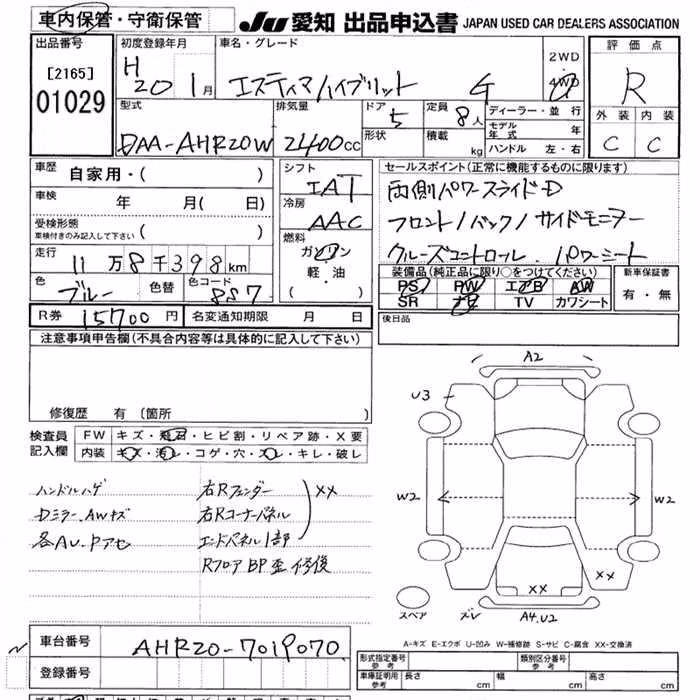 車内保管・守衛保管
JU 愛知 出品申込書 JAPAN USED CAR DEALERS ASSOCIATION
出品番号 初度登録年月 車名・グレード 2WD 4WD 評価点
[2165] 01029 H20 1月 エスティマハイブリット G R
型式 排気量 ドア 5 定員 8人 ディーラー・並行 外装 内装
DAA-AHR20W 2400cc 形状 積載 kg モデル年式 年 ハンドル 左・右 C C
車歴 自家用・( ) シフト セールスポイント(正常に機能するものに限ります)
IAT 両側パワースライドD
車検 年 月( 日) 冷房
AAC フロント/バック/サイドモニター
受検形態 車検付きのみ記入して下さい ( ) 燃料
走行 11万8千398km ガソリン クルーズコントロール.パワーシート
軽・油 装備品(純正品に限り○をつけてください) 新車保証書
色 ブルー 色替 色コード 8S7 ( ) PS PW エアB AW 有・無
SR ナビ TV カワシート
R券 15700円 名変通知期限 月 日 後日品
注意事項申告欄(不具合内容等は具体的に記入して下さい)
A2
U3
修復歴 有(箇所 )
検査員記入欄 FW キズ・飛石・ヒビ割・リペア跡・X要
内装 キズ・汚レ・コゲ・穴・スレ・キレ・破レ
ハンドルハゲ 右Rフェンダー XX
Dミラー.AWキズ 右Rコーナーパネル W2 W2
各AU.Pアセ エンドパネル1部
RフロアBP歪修後
XX XX
スペア ズレ A4.U2
A-キズ E-エクボ U-凹み W-補修跡 S-サビ C-腐食 XX-交換済
車台番号 AHR20-7019070
形式指定番号 参考 類別区分番号 参考
登録番号 車庫証明用 参考 長さ cm 幅 cm 高さ cm